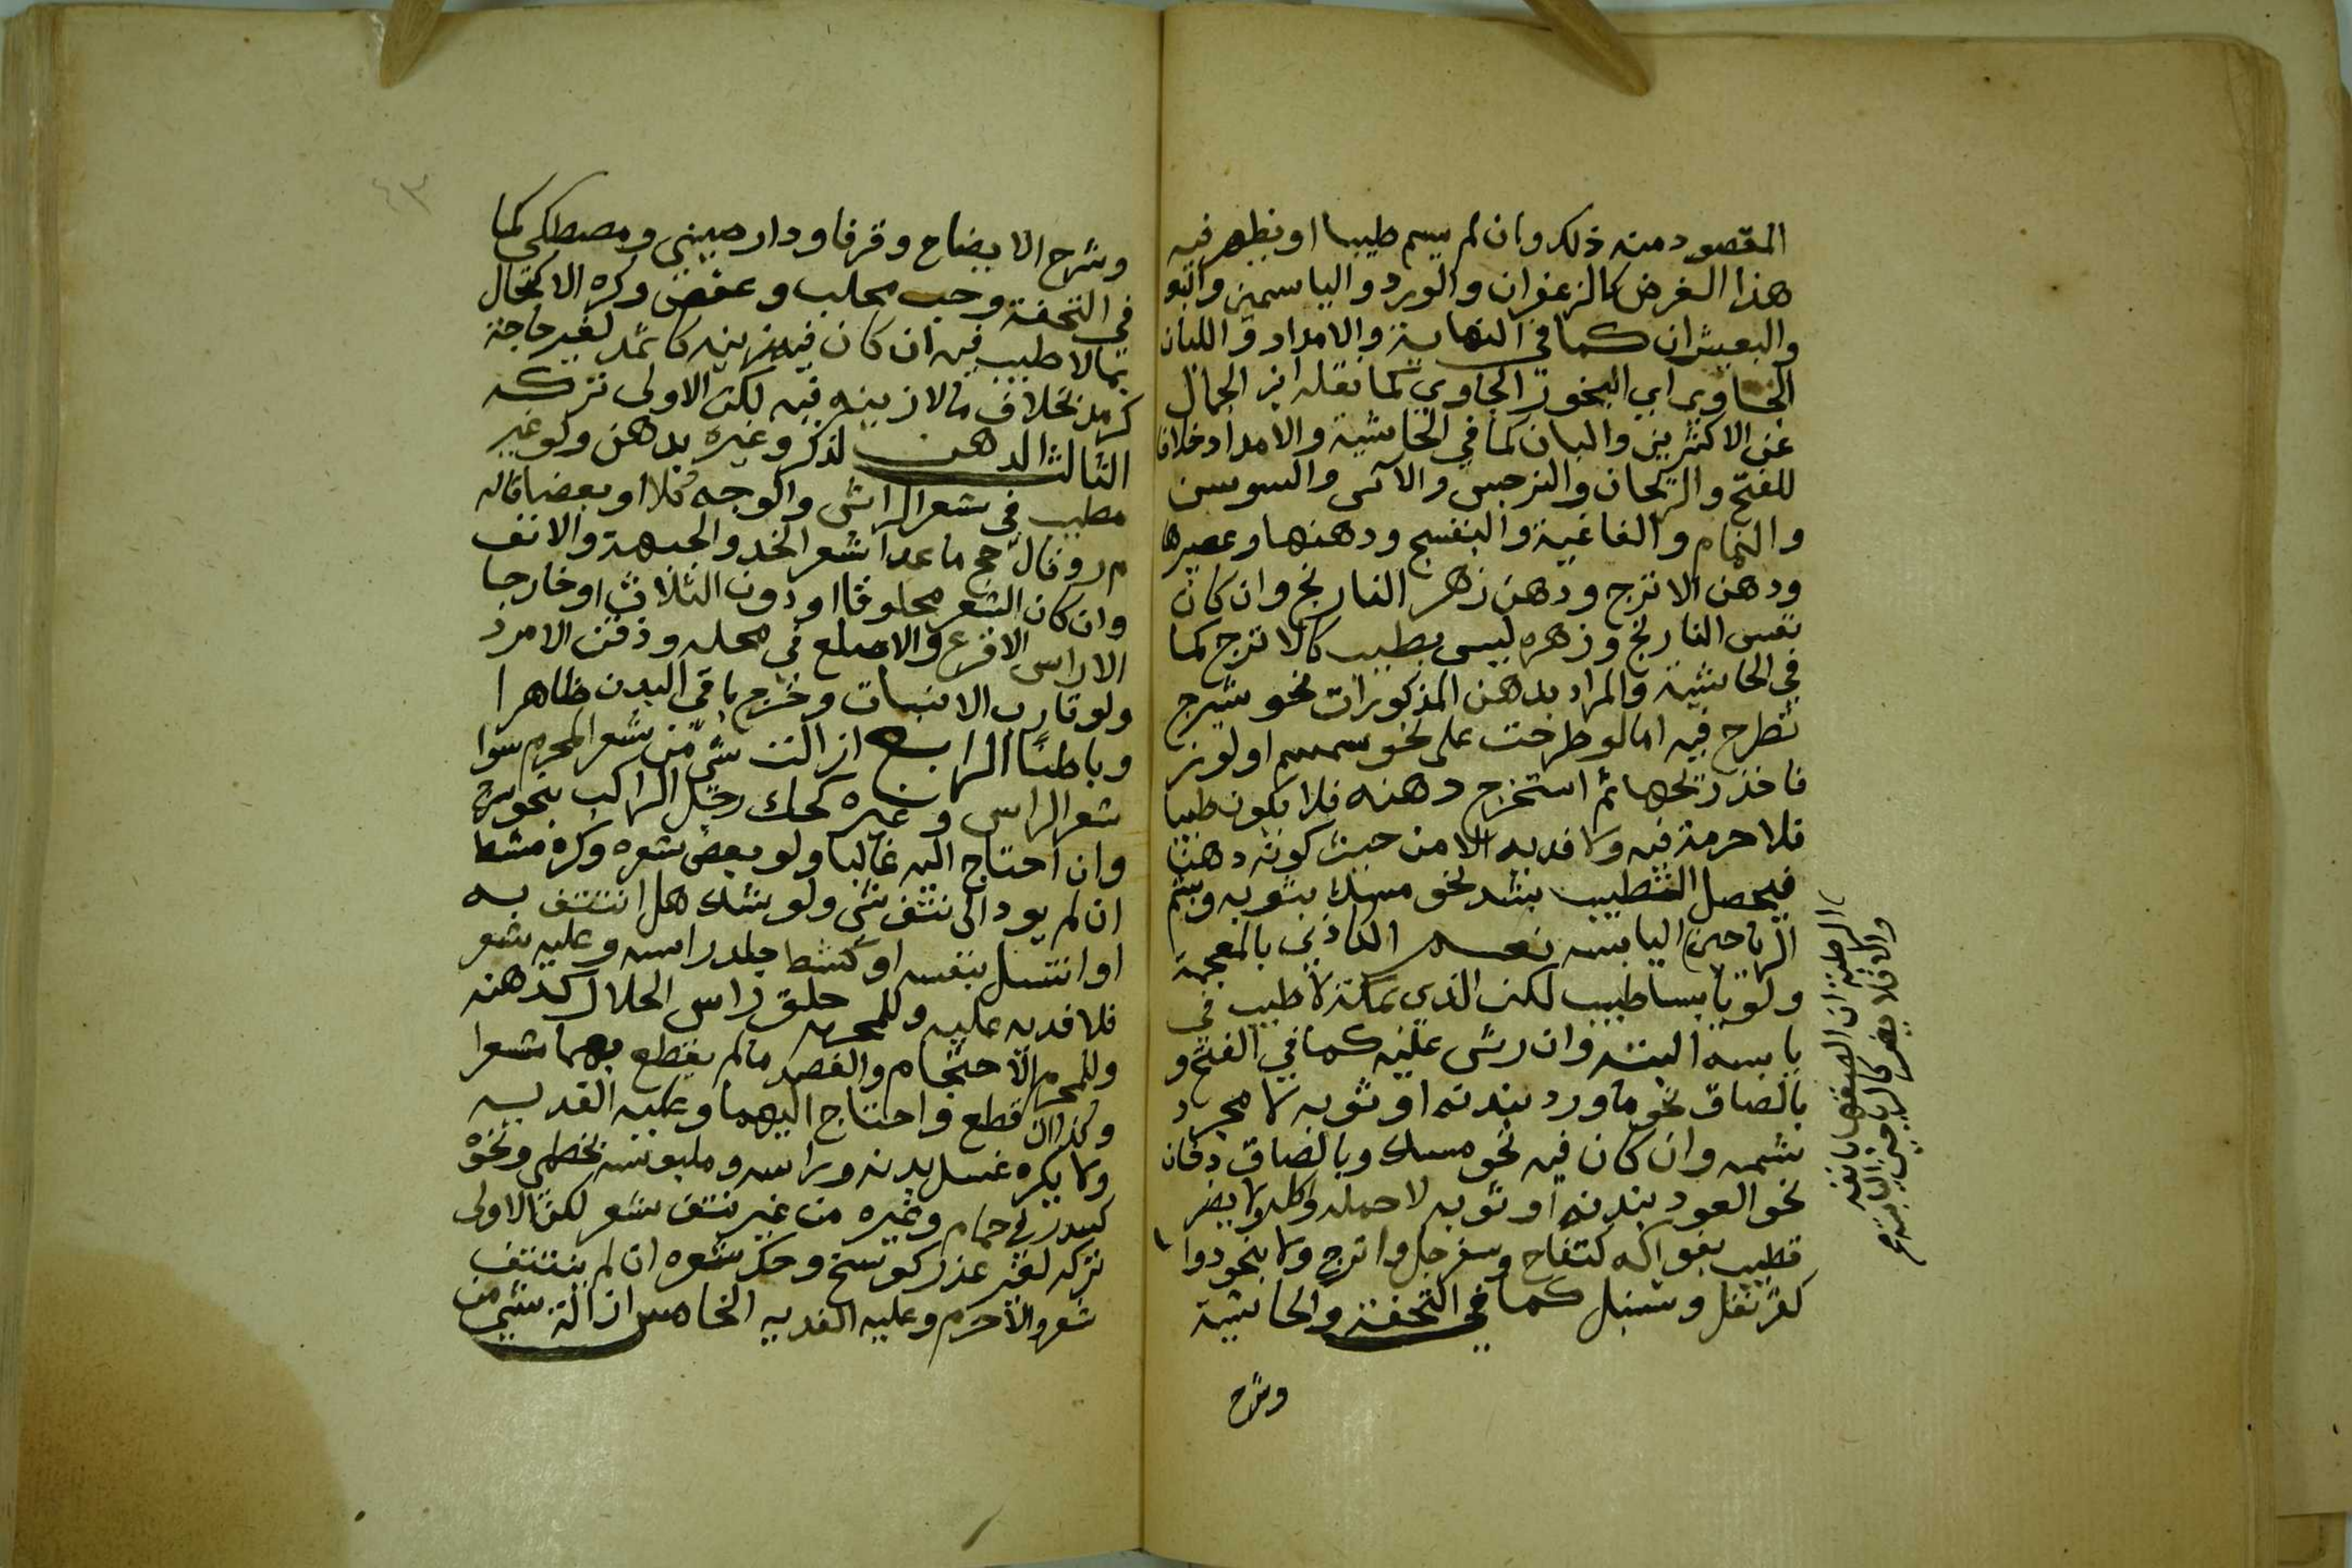 المقصود منه ذلك وان لم يسم طيبا او يظهر فيه
هذا الغرض كالزعفران والورد والياسمين
والبعيثران كما في النهاية والامداد واللبان
الجاوي اي البخور الجاوي كما نقله ابن الجمال
عن الاكثرين والبان كما في الحاشية والامداد خلافا
للفتح والريحان والنرجس والآس والسوسن
والنمام والفاغية والبنفسج ودهنها وعصيرها
ودهن الاترج ودهن زهر النارنج وان كان
نفس النارنج وزهره ليس بطيب كالاترج كما
في الحاشية والمراد بدهن المذكورات نحو شيرج
تطرح فيه اما لو طرحت على نحو سمسم او لوز
فاخذ ريحها ثم استخرج دهنه فلا يكون طيبا
فلا حرمة فيه ولا فديه الا من حيث كونه دهنا
فيحصل التطيب بشد نحو مسك بثوبه وشم
الرياحين اليابسه نعم الكاذي بالمعجمة
ولو يابسا طيب لكن الذي بمكة لا طيب في
يابسه البته وان رش عليه كما في الفتح و
بالصاق نحو ماورد ببدنه او ثوبه لا مجرد
شمه وان كان فيه نحو مسك وبالصاق دخان
نحو العود ببدنه او ثوبه لا حمله واكله ولا يضر
تطيب بفواكه كتفاح وسفرجل واترج ولا بنحو دوا
كقرنفل وسنبل كما في التحفة والحاشية
وشرح
الرطبة ان الصقها بانفه
والا فلا يضر كالرياحين اليابسة
وشرح الايضاح وقرفا ودار صيني ومصطكى كما
في التحفة وحب محلب وعفص وكره الاكتحال
بما لا طيب فيه ان كان فيه زينه كاثمد لغير حاجة
كرمد بخلاف ما لا زينه فيه لكن الاولى تركه
الثالث الدهن لذكر وغيره بدهن ولو غير
مطيب في شعر الراس والوجه كلا او بعضا قاله
م ر وقال حج ما عدا شعر الخد والجبهة والانف
وان كان الشعر محلوقا او دون الثلاث او خارجا
الا راس الاقرع والاصلع في محله وذقن الامرد
ولو قارب الانبات وخرج باقي البدن ظاهرا
وباطنا الرابع ازالت شي من شعر المحرم سوا
شعر الراس وغيره كحك رجل الراكب بنحو سرج
وان احتاج اليه غالبا ولو بعض شعره وكره مشط
ان لم يود الى نتف شي ولو شك هل انتتف به
او انتسل بنفسه او كشط جلد راسه وعليه شعر
فلا فديه عليه وللمحرم حلق راس الحلال كدهنه
وللمحرم الاحتجام والفصد ما لم يقطع بهما شعرا
وكذا ان قطع واحتاج اليهما وعليه الفديه
ولا يكره غسل بدنه وراسه وملبوسه بخطمي ونحوه
كسدر في حمام وغيره من غير نتف شعر لكن الاولى
تركه لغير عذر كوسخ وحك شعره ان لم ينتتف
شعر والا حرم وعليه الفديه الخامس ازالة شي من